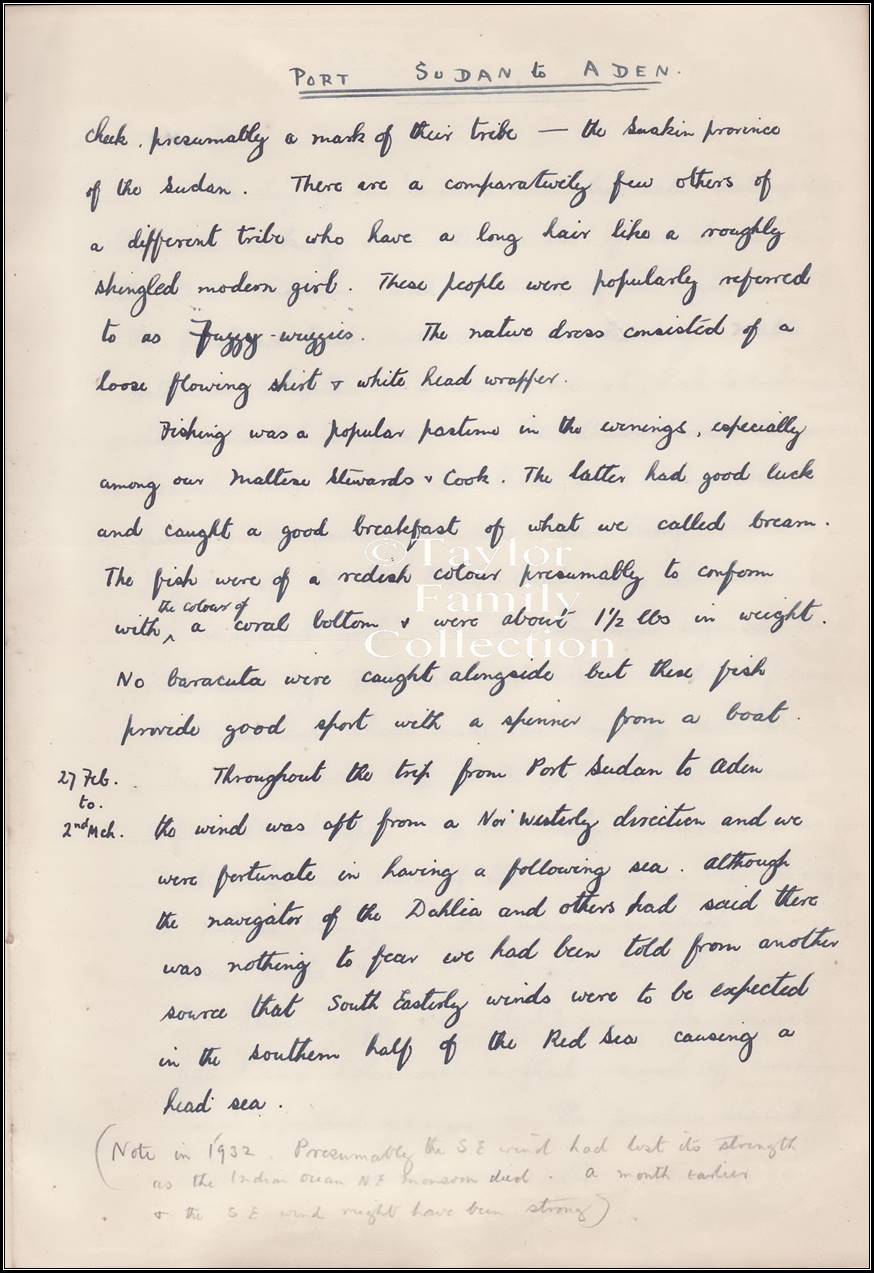 PORT SUDAN to ADEN.
cheek, presumably a mark of their tribe — the Suakin province
of the Sudan. There are a comparatively few others of
a different tribe who have a long hair like a roughly
shingled modern girl. These people were popularly referred
to as "Fuzzy-wuzzies. The native dress consisted of a
loose flowing shirt & white head wrapper.
Fishing was a popular pastime in the evenings, especially
among our Maltese Stewards & Cook. The latter had good luck
and caught a good breakfast of what we called bream.
The fish were of a redish colour presumably to conform
the colour of
with ^ a coral bottom & were about 1½ lbs in weight.
No baracuta were caught alongside but these fish
provide good sport with a spinner from a boat.
27 Feb. Throughout the trip from Port Sudan to Aden
to.
2nd Mch. the wind was aft from a Nor' Westerly direction and we
were fortunate in having a following sea. Although
the navigator of the Dahlia and others had said there
was nothing to fear we had been told from another
source that South Easterly winds were to be expected
in the southern half of the Red Sea causing a
head sea.
(Note in 1932. Presumably the S E wind had lost its strength
as the Indian ocean N E monsoon died. A month earlier
& the S E wind might have been strong).
©Taylor
Family
Collection